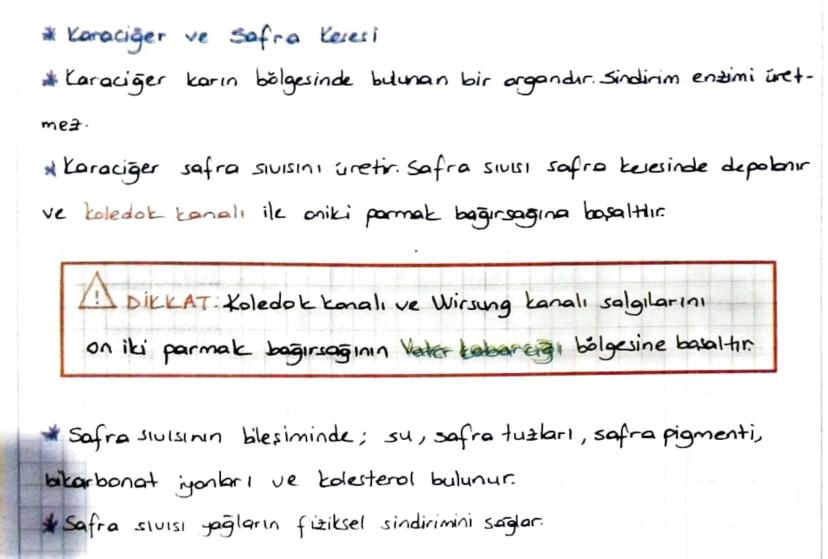 * Karaciğer ve Safra Kesesi
* Karaciğer karın bölgesinde bulunan bir organdır. Sindirim enzimi üret-
mez.
* Karaciğer safra sıvısını üretir. Safra sıvısı safra kesesinde depolanır
ve koledok kanalı ile oniki parmak bağırsağına boşaltılır.
⚠ DİKKAT: Koledok kanalı ve Wirsung kanalı salgılarını
on iki parmak bağırsağının Vater kabarcığı bölgesine boşaltır.
* Safra sıvısının bileşiminde; su, safra tuzları, safra pigmenti,
bikarbonat iyonları ve kolesterol bulunur.
* Safra sıvısı yağların fiziksel sindirimini sağlar.